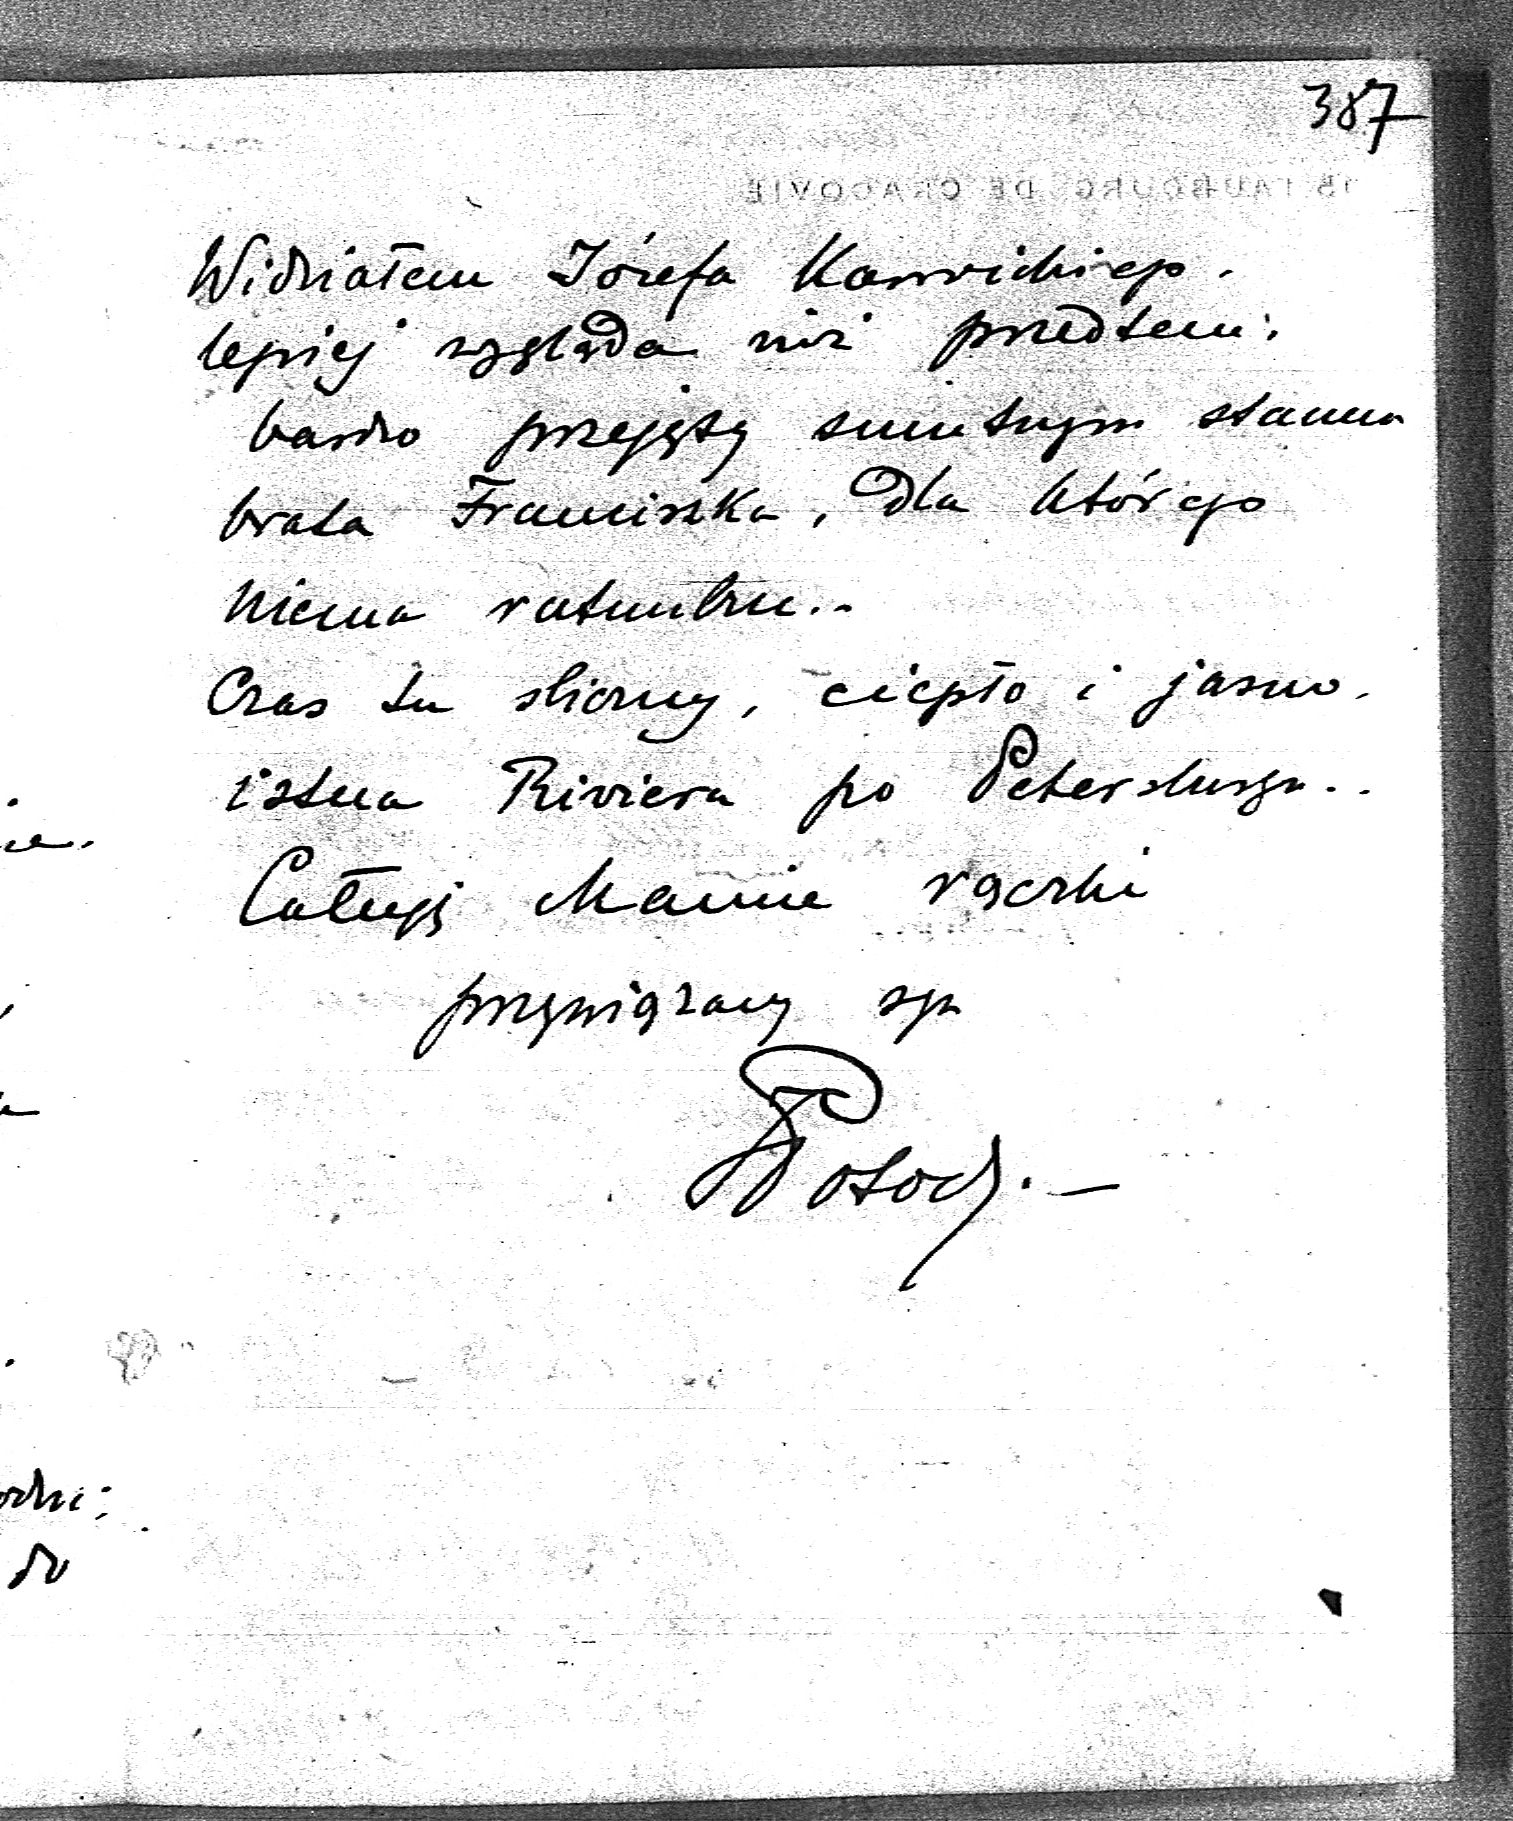 387
15 FAUBOURG DE CRACOVIE
Widziałem Józefa Karwickiego.
lepiej wygląda niż przedtem;
bardzo przejęty smutnym stanem
brata Franciszka, dla którego
niema ratunku..
Czas tu śliczny, ciepło i jasno.
istna Riviera po Petersburgu..
Całuję Mamie rączki
przywiązany syn
Potocki. —
do